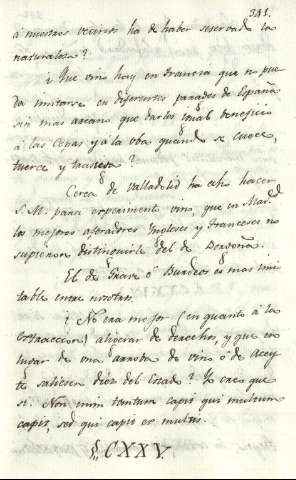 341.
á nuestros vecinos ha de haber reservado la
naturaleza?
¿Que vino hay en Francia que no pue
da imitarse en diferentes parages de España
sin mas arcano que darles igual beneficio
á las cepas, y á la uba quando se cuece,
tuerce y trasiega?
Cerca de Valladolid ha echo hacer
S. M. para experimento vino, que en Mad.d
los mejores aforadores Yngleses y Franceses no
supieron distinguirle del de Bordoña.
El de Grave ó Burdeos es mas imi
table entre nosotros.
¿No era mejor (en quanto á la
extraccion) aligerar de derechos, y que en
lugar de una arroba de vino ó de Acey
te saliesen diez del Estado? Yo creo que
si. Non enim tantum capis qui multum
capis, sed qui capis ex multis.
§. CXXV.